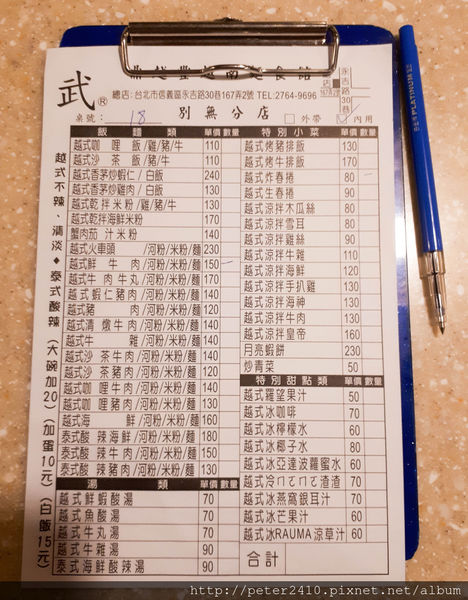 武®
總店:台北市信義區永吉路30巷167弄2號 TEL:2764-9696
永吉路30巷
別無分店
桌號: 18 外帶 內用
越式不辣、清淡◆泰式酸辣(大碗加20)(加蛋10元)(白飯15元)
飯麵類 單價 數量
越式咖哩飯/雞/豬/牛 110
越式沙茶飯/豬/牛 110
越式香茅炒蝦仁/白飯 240
越式香茅炒雞肉/白飯 130
越式乾拌米粉/雞/豬/牛 130
越式乾拌海鮮米粉 170
蟹肉茄汁米粉 140
越式火車頭/河粉/米粉/麵 230
越式鮮牛肉/河粉/米粉/麵 150
越式牛肉牛丸/河粉/米粉/麵 170
越式蝦仁豬肉/河粉/米粉/麵 140
越式豬肉/河粉/米粉/麵 120
越式清燉牛肉/河粉/米粉/麵 140
越式牛雜/河粉/米粉/麵 140
越式沙茶牛肉/河粉/米粉/麵 140
越式沙茶豬肉/河粉/米粉/麵 120
越式咖哩牛肉/河粉/米粉/麵 140
越式咖哩豬肉/河粉/米粉/麵 130
越式海鮮/河粉/米粉/麵 160
泰式酸辣海鮮/河粉/米粉/麵 180
泰式酸辣牛肉/河粉/米粉/麵 150
泰式酸辣豬肉/河粉/米粉/麵 130
湯類 單價 數量
越式鮮蝦酸湯 70
越式魚酸湯 70
越式牛丸湯 70
越式牛雜湯 90
泰式海鮮酸辣湯 90
特別小菜 單價 數量
越式烤豬排飯 130
越式烤牛排飯 170
越式炸春捲 80
越式生春捲 90
越式涼拌木瓜絲 80
越式涼拌雪耳 80
越式涼拌雞絲 90
越式涼拌牛雜 110
越式涼拌海鮮 120
越式涼拌手扒雞 130
越式涼拌海神 130
越式涼拌牛肉 130
越式涼拌皇帝 160
月亮蝦餅 230
炒青菜 50
特別甜點類 單價 數量
越式羅望果汁 50
越式冰咖啡 70
越式冰檸檬水 60
越式冰椰子水 80
越式冰亞達波蘿蜜水 60
越式冷ㄇㄛㄇㄛ渣渣 70
越式冰燕窩銀耳汁 70
越式冰芒果汁 60
越式冰RAUMA涼草汁 60
合計
PLATINUM
http://peter2410.pixnet.net/album